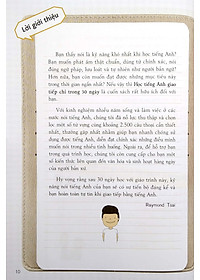 Lời giới thiệu
Bạn thấy nói là kỹ năng khó nhất khi học tiếng Anh?
Bạn muốn phát âm thật chuẩn, dùng từ chính xác, nói
đúng ngữ pháp, lưu loát và tự nhiên như người bản ngữ?
Hơn nữa, bạn còn muốn đạt được những mục tiêu này
trong thời gian ngắn nhất? Nếu vậy thì Học tiếng Anh giao
tiếp chỉ trong 30 ngày là cuốn sách rất hữu ích đối với
bạn.
Với kinh nghiệm nhiều năm sống và làm việc ở các
nước nói tiếng Anh, chúng tôi đã nỗ lực thu thập và chọn
lọc một số từ vựng cùng khoảng 2.500 câu thoại cần thiết
nhất, thường gặp nhất nhằm giúp bạn nhanh chóng sử
dụng được tiếng Anh, diễn tả chính xác những điều mình
muốn nói trong nhiều tình huống. Ngoài ra, để hỗ trợ bạn
trong quá trình học, chúng tôi còn cung cấp cho bạn một
số kiến thức liên quan đến văn hóa và sinh hoạt hàng ngày
của người bản xứ.
Hy vọng rằng sau 30 ngày học với giáo trình này, kỹ
năng nói tiếng Anh của bạn sẽ có sự tiến bộ đáng kể và
bạn hoàn toàn tự tin khi giao tiếp bằng tiếng Anh.
Raymond Tsai
10